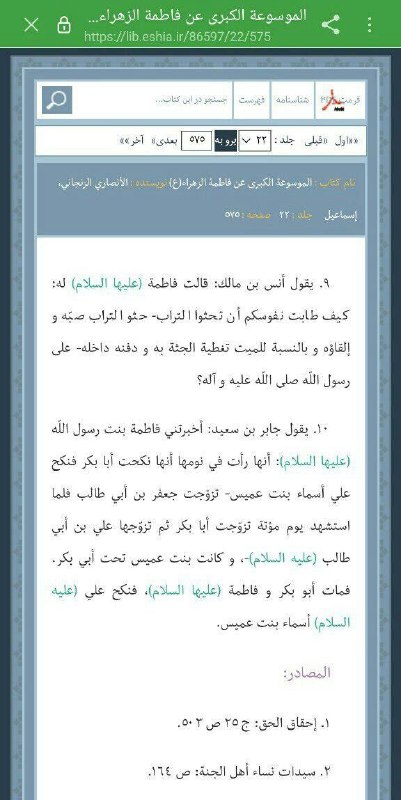 الموسوعة الكبرى عن فاطمة الزهراء...
https://lib.eshia.ir/86597/22/575
جستجو در این کتاب...
فهرست
شناسنامه
فرمت PDF
««اول «قبلی جلد : ٢٢ برو به ٥٧٥ بعدی» آخر»»
نام کتاب : الموسوعة الكبرى عن فاطمة الزهراء(ع) نویسنده : الأنصاري الزنجاني،
إسماعيل جلد : ٢٢ صفحه : ٥٧٥
٩. يقول أنس بن مالك: قالت فاطمة (عليها السلام) له:
كيف طابت نفوسكم أن تحثوا التراب- حثو التراب صبّه و
إلقاؤه و بالنسبة للميت تغطية الجثة به و دفنه داخله- على
رسول اللّه صلى اللّه عليه و آله؟
١٠. يقول جابر بن سعيد: أخبرتني فاطمة بنت رسول اللّه
(عليها السلام): أنها رأت في نومها أنها نكحت أبا بكر فنكح
علي أسماء بنت عميس- تزوّجت جعفر بن أبي طالب فلما
استشهد يوم مؤتة تزوّجت أبا بكر ثم تزوّجها علي بن أبي
طالب (عليه السلام)-، و كانت بنت عميس تحت أبي بكر.
فمات أبو بكر و فاطمة (عليها السلام)، فنكح علي (عليه
السلام) أسماء بنت عميس.
المصادر:
١. إحقاق الحق: ج ٢٥ ص ٥٠٢.
٢. سيدات نساء أهل الجنة: ص ١٦٤.